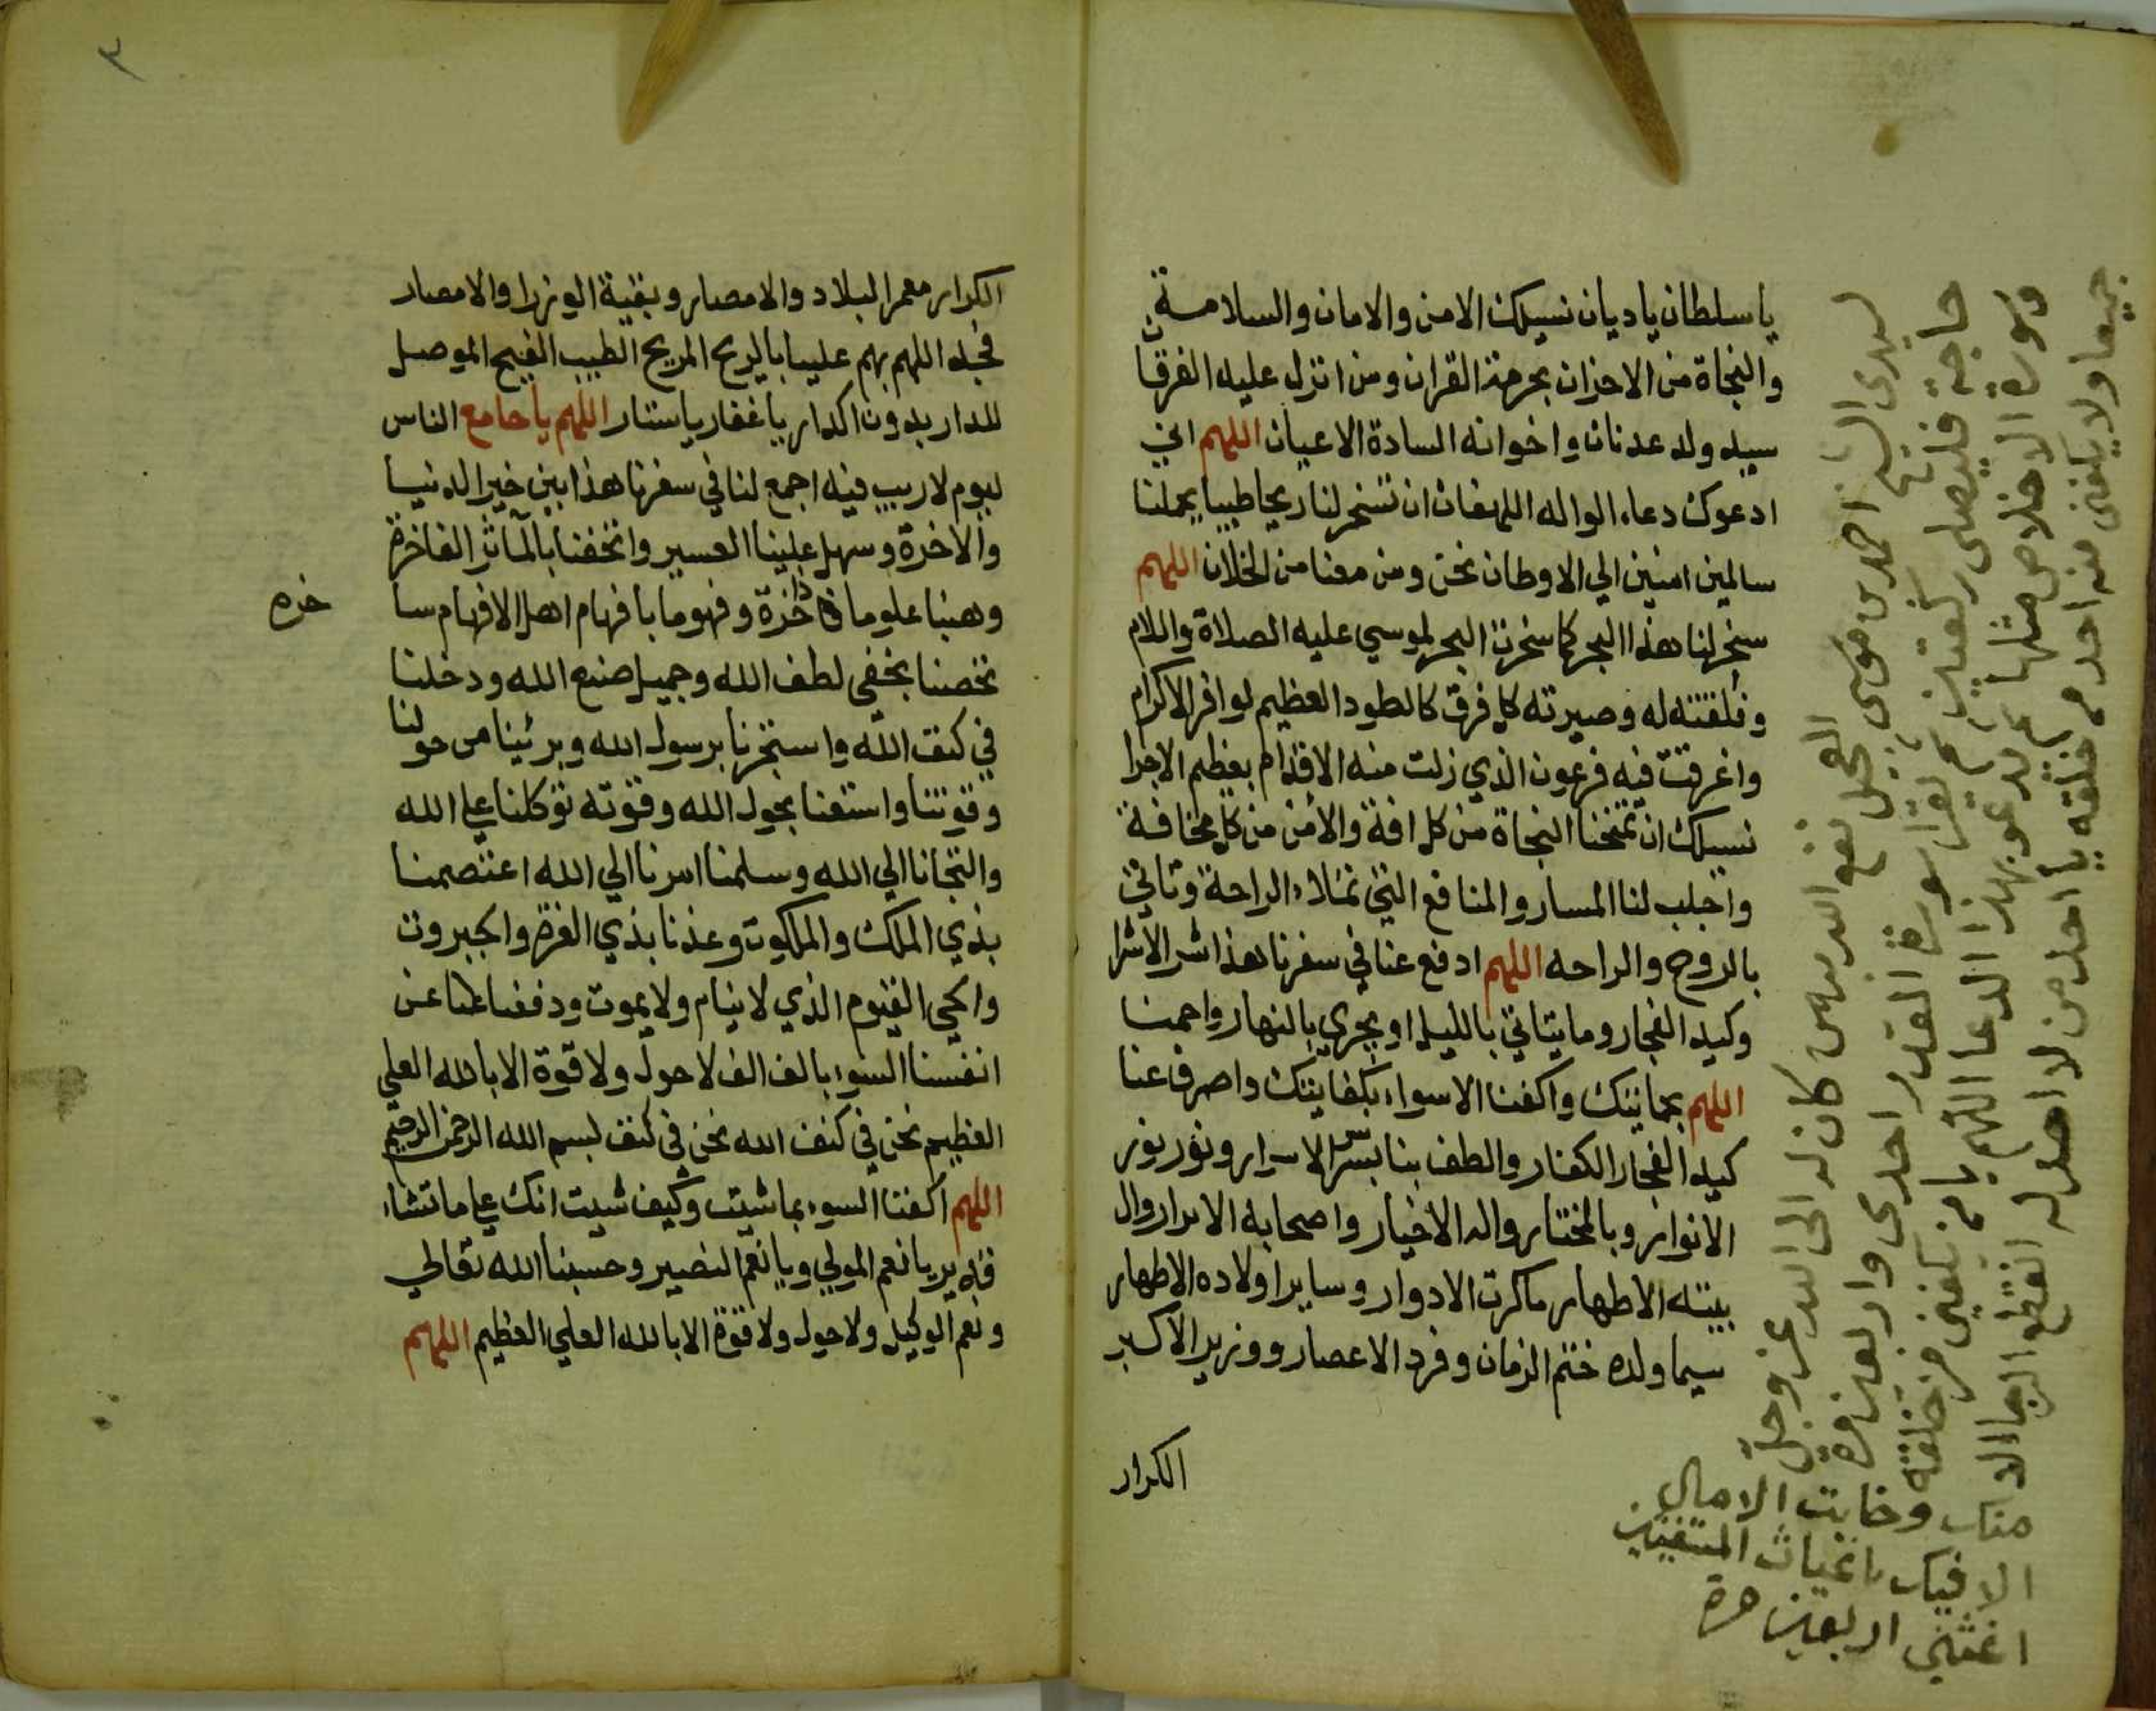 يا سلطان يا ديان نسيلك الامن والامان والسلامة
والنجاة من الاحزان بحرمة القران ومن انزل عليه الفرقان
سيد ولد عدنان واخوانه السادة الاعيان اللهم اني
ادعوك دعاء الواله اللهفان ان تسخر لنا ريحا طيبا يحملنا
سالمين امنين الي الاوطان نحن ومن معنا من الخلان اللهم
سخر لنا هذا البحر كما سخرت البحر لموسي عليه الصلاة والسلام
وفلقته له وصيرته كل فرق كالطود العظيم لوافر الاكرام
واغرقت فيه فرعون الذي زلت منه الاقدام بعظيم الاجرا
نسيلك ان تمنحنا النجاة من كل افة والامن من كل مخافة
واجلب لنا المسار والمنافع التي تملاء الراحة وتاتي
بالروح والراحه اللهم ادفع عنا في سفرنا هذا شر الاشرا
وكيد الفجار وما يتاتي بالليل او يجري بالنهار واحمنا
اللهم بحمايتك واكفنا الاسواء بكفايتك واصرف عنا
كيد الفجار الكفار والطف بنا بسر الاسرار ونور نور
الانوار وبالمختار واله الاخيار واصحابه الابرار وال
بيته الاطهار ما كرت الادوار وساير اولاده الاطهار
سيما ولده ختم الزمان وفرد الاعصار ووزير الاكبر
الكرار
لسيدي الشيخ احمد بن موسى العجيل نفع الله به من كان له الى الله عز وجل
حاجة فليصلى ركعتين ثم يقرا سورة القدر احدى واربعين مرة
وسورة الاخلاص مثلها ثم يدعو بهذا الدعا اللهم يا من يكفي من خلقه
جميعا ولا يكفى منه احد من خلقه يا احد من لا احد له انقطع الرجا الا
منك وخابت الامال
الا فيك يا غياث المستغيثين
اغثني اربعين مرة
٣
الكرار معمر البلاد والامصار وبقية الوزرا والامصار
فجد اللهم بهم علينا بالريح المريح الطيب الفيح الموصل
للدار بدون اكدار يا غفار يا ستار اللهم يا جامع الناس
ليوم لا ريب فيه اجمع لنا في سفرنا هذا بين خير الدنيا
والاخرة وسهل علينا العسير واتحفنا بالمآثر الفاخرة
وهبنا علوما ذاخزة وفهوما بافهام اهل الافهام سا
خره
تحصنا بخفي لطف الله وجميل صنع الله ودخلنا
في كنف الله واستجرنا برسول الله وبرئنا من حولنا
وقوتنا واستعنا بحول الله وقوته توكلنا علي الله
والتجانا الي الله وسلمنا امرنا الي الله اعتصمنا
بذي الملك والملكوت وعذنا بذي العزة والجبروت
والحي القيوم الذي لا ينام ولا يموت ودفعنا عنا عن
انفسنا السوء بالف الف لا حول ولا قوة الا بالله العلي
العظيم نحن في كنف الله نحن في كنف بسم الله الرحمن الرحيم
اللهم اكفنا السوء بما شيت وكيف شيت انك علي ما تشاء
قدير يا نعم المولي ويا نعم النصير وحسبنا الله تعالي
ونعم الوكيل ولا حول ولا قوة الا بالله العلي العظيم اللهم